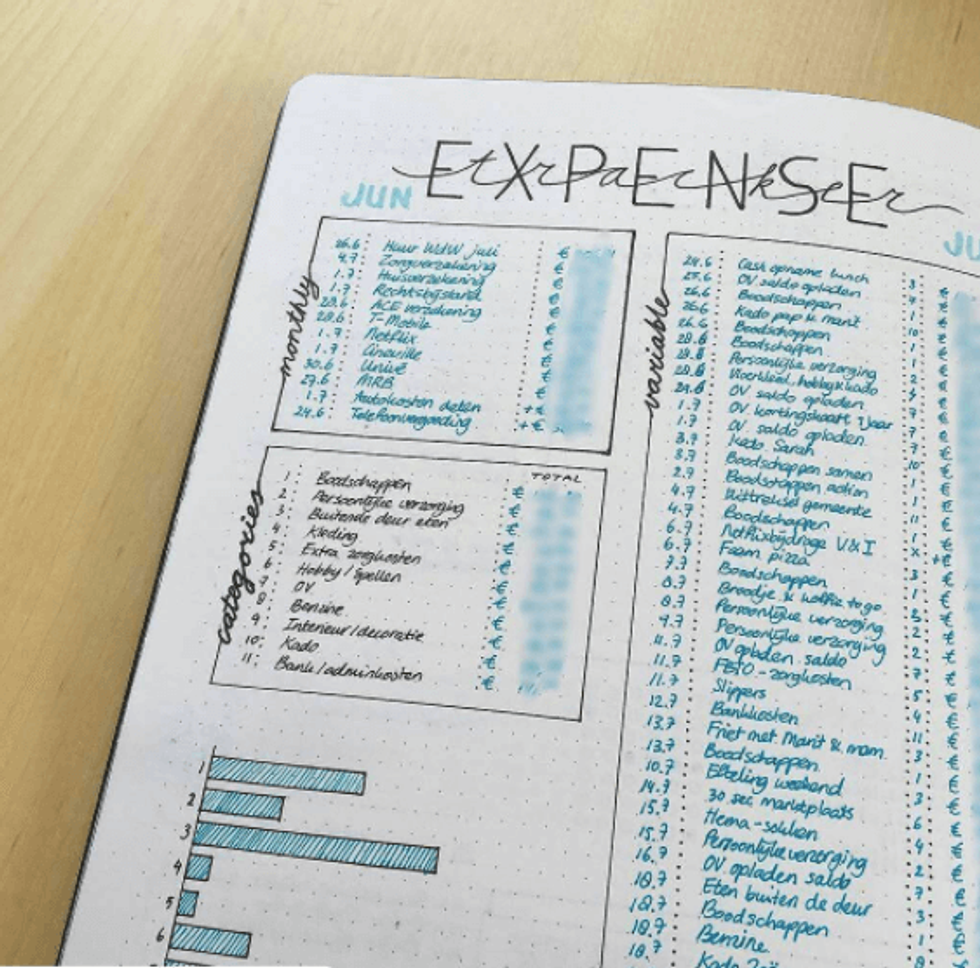 EXPENSE
tracker
JUN
monthly
26.6 Huur WdW juli €
4.7 Zorgverzekering €
1.7 Huisverzekering €
1.7 Rechtsbijstand €
1.7 ACE verzekering €
28.6 T-Mobile €
28.6 Netflix €
1.7 Cineville €
1.7 Univé €
30.6 MRB €
27.6 Autokosten delen +€
1.7 Telefoonvergoeding +€
24.6
categories
TOTAL
1: Boodschappen €
2: Persoonlijke verzorging €
3: Buitende deur eten €
4: Kleding €
5: Extra zorgkosten €
6: Hobby/spellen €
7: OV €
8: Benzine €
9: Interieur/decoratie €
10: Kado €
11: Bank/adminkosten €
1
2
3
4
5
6
JU
variable
24.6 Cash opname lunch 3 €
25.6 OV saldo opladen 7 €
26.6 Boodschappen 1 €
26.6 Kado pap & marit 10 €
26.6 Boodschappen 1 €
28.6 Boodschappen 1 €
28.6 Persoonlijke verzorging 2 €
28.6 Vloerkleed, hobby & kado
29.6 OV saldo opladen 7 €
1.7 OV kortingskaart 1 jaar 7 €
1.7 OV saldo opladen 7 €
3.7 Kado Sarah 10 €
3.7 Boodschappen samen 1 €
2.7 Boodschappen action 1 €
4.7 Uittreksel gemeente 11 €
4.7 Boodschappen 1 €
6.7 Netflixbijdrage V&I x +€
6.7 Foam pizza 3 €
7.7 Boodschappen 1 €
8.7 Broodje & koffie to go 3 €
8.7 Persoonlijke verzorging 2 €
9.7 Persoonlijke verzorging 2 €
11.7 OV opladen saldo 7 €
11.7 zorgkosten 5 €
11.7 Slippers 4 €
12.7 Bankkosten 11 €
13.7 Friet met Marit & mam 3 €
13.7 Boodschappen 1 €
10.7 Efteling weekend 3 €
14.7 30 sec marktplaats 6 €
15.7 Hema-sokken 4 €
15.7 Persoonlijke verzorging 2 €
16.7 OV opladen saldo 7 €
18.7 Eten buiten de deur 3 €
18.7 Boodschappen 1 €
18.7 Benzine 8
Kado